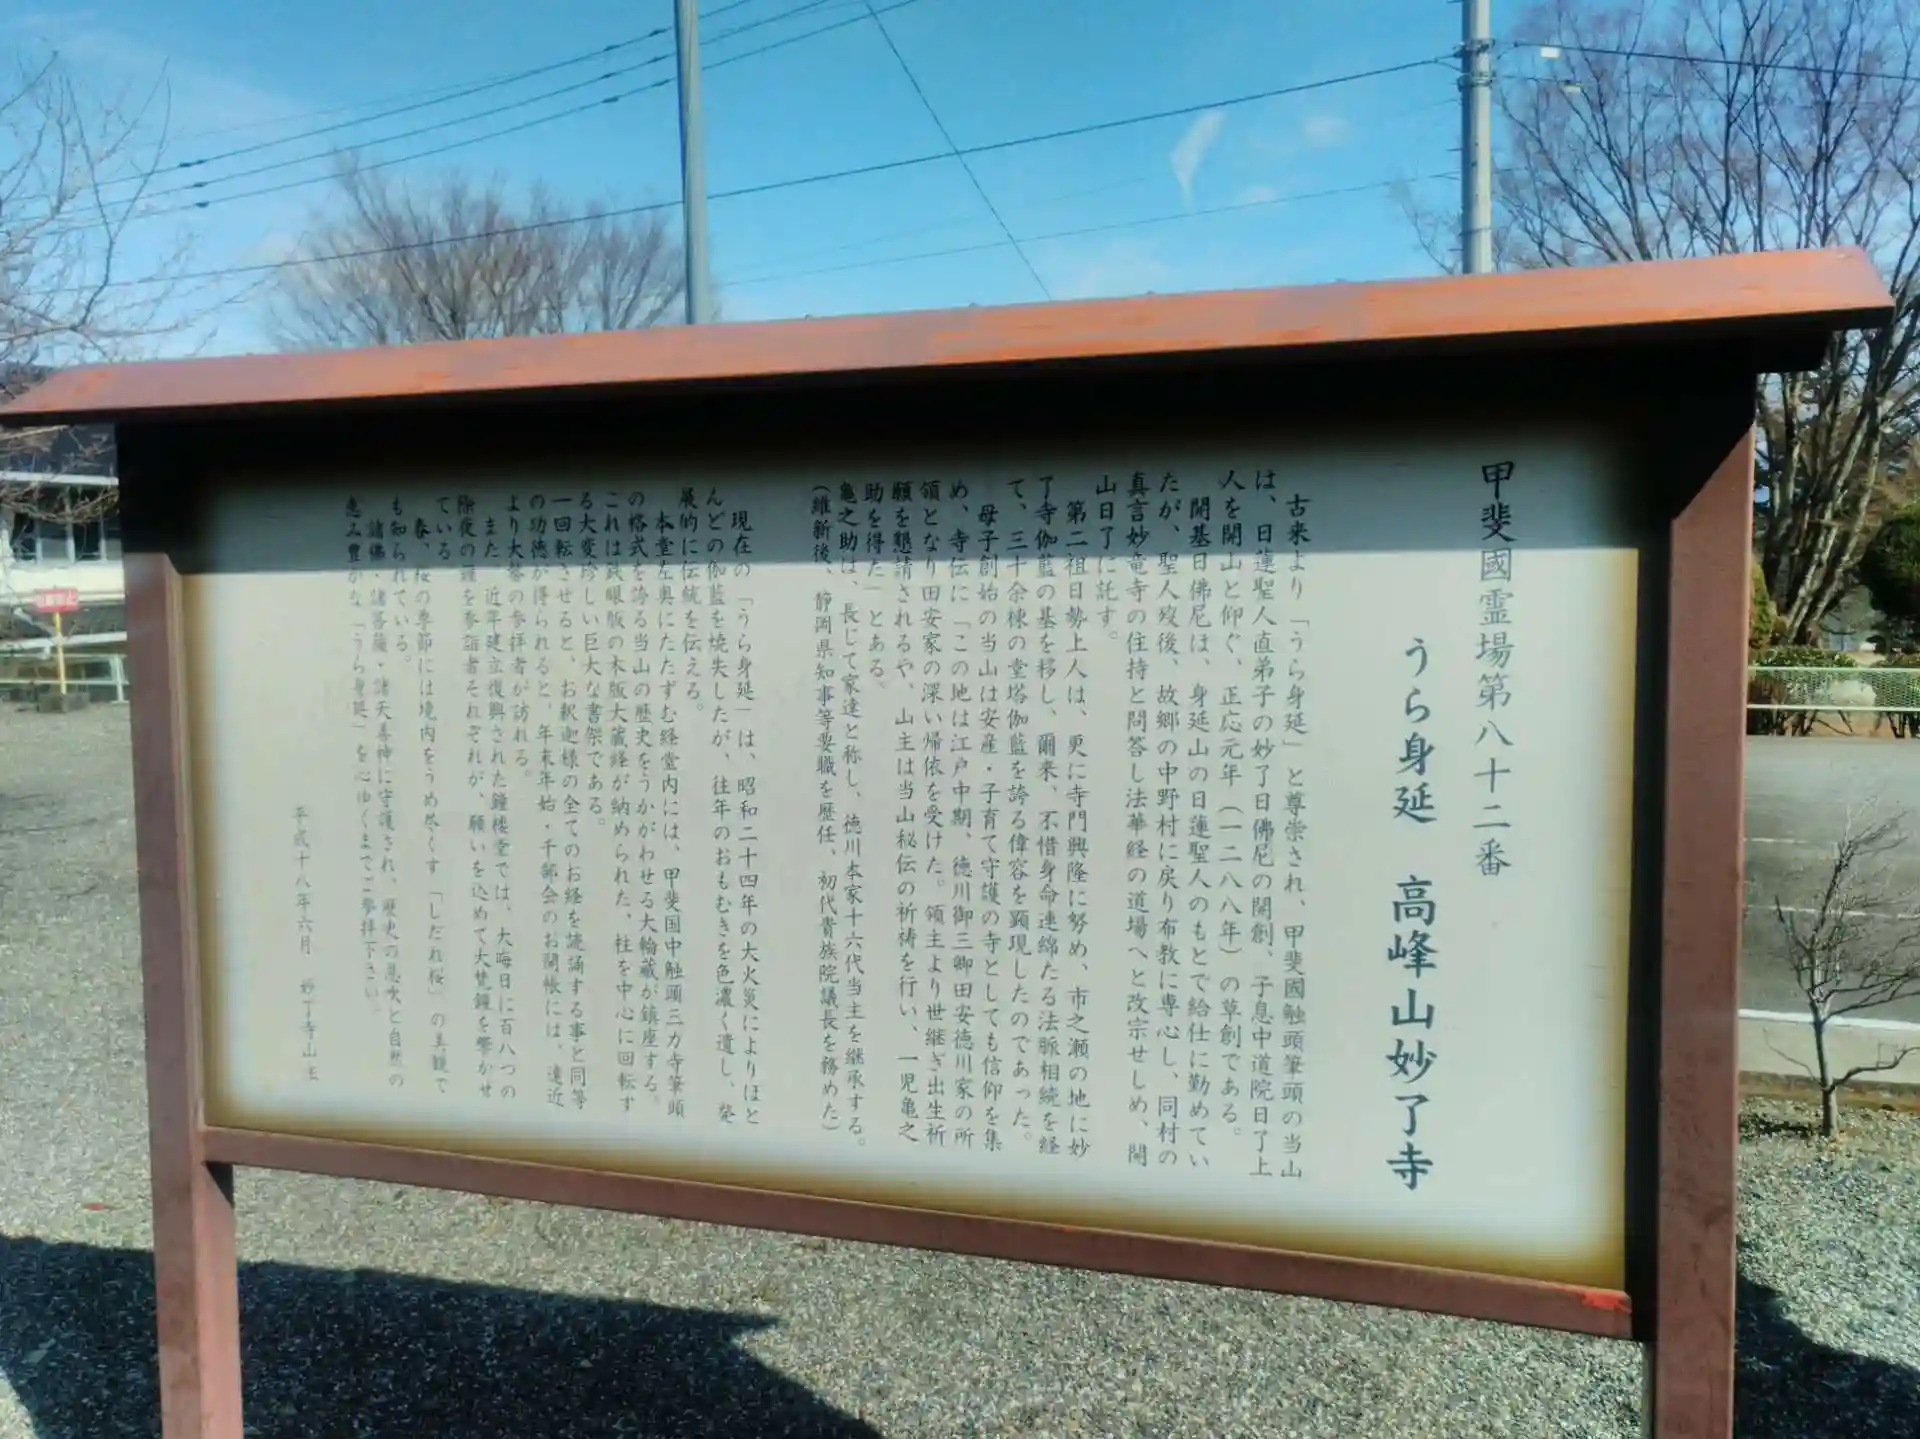 甲斐國霊場第八十二番
うら身延 高峰山妙了寺
古来より「うら身延」と尊崇され、甲斐國触頭筆頭の当山
は、日蓮聖人直弟子の妙了日佛尼の開創、子息中道院日了上
人を開山と仰ぐ、正応元年(一二八八年)の草創である。
開基日佛尼は、身延山の日蓮聖人のもとで給仕に勤めてい
たが、聖人歿後、故郷の中野村に戻り布教に専心し、同村の
真言妙竜寺の住持と問答し法華経の道場へと改宗せしめ、開
山日了に託す。
第二祖日勢上人は、更に寺門興隆に努め、市之瀬の地に妙
了寺伽藍の基を移し、爾来、不惜身命連綿たる法脈相続を経
て、三十余棟の堂塔伽藍を誇る偉容を顕現したのであった。
母子創始の当山は安産・子育て守護の寺としても信仰を集
め、寺伝に「この地は江戸中期、徳川御三卿田安徳川家の所
領となり田安家の深い帰依を受けた。領主より世継ぎ出生祈
願を懇請されるや、山主は当山秘伝の祈祷を行い、一児亀之
助を得た」とある。
亀之助は、長じて家達と称し、徳川本家十六代当主を継承する。
(維新後、静岡県知事等要職を歴任、初代貴族院議長を務めた)
現在の「うら身延」は、昭和二十四年の大火災によりほと
んどの伽藍を焼失したが、往年のおもむきを色濃く遺し、発
展的に伝統を伝える。
本堂左奥にたたずむ経堂内には、甲斐国中触頭三カ寺筆頭
の格式を誇る当山の歴史をうかがわせる大輪蔵が鎮座する。
これは鉄眼版の木版大蔵経が納められた、柱を中心に回転す
る大変珍しい巨大な書架である。
一回転させると、お釈迦様の全てのお経を読誦する事と同等
の功徳が得られると、年末年始・千部会のお開帳には、遠近
より大勢の参拝者が訪れる。
また、近年建立復興された鐘楼堂では、大晦日に百八つの
除夜の鐘を参詣者それぞれが、願いを込めて大梵鐘を響かせ
ている
春、桜の季節には境内をうめ尽くす「しだれ桜」の美観で
も知られている。
諸佛、諸菩薩・諸天善神に守護され、歴史の息吹と自然の
恵み豊かな「うら身延」を心ゆくまでご参拝下さい。
平成十八年六月 妙了寺山主